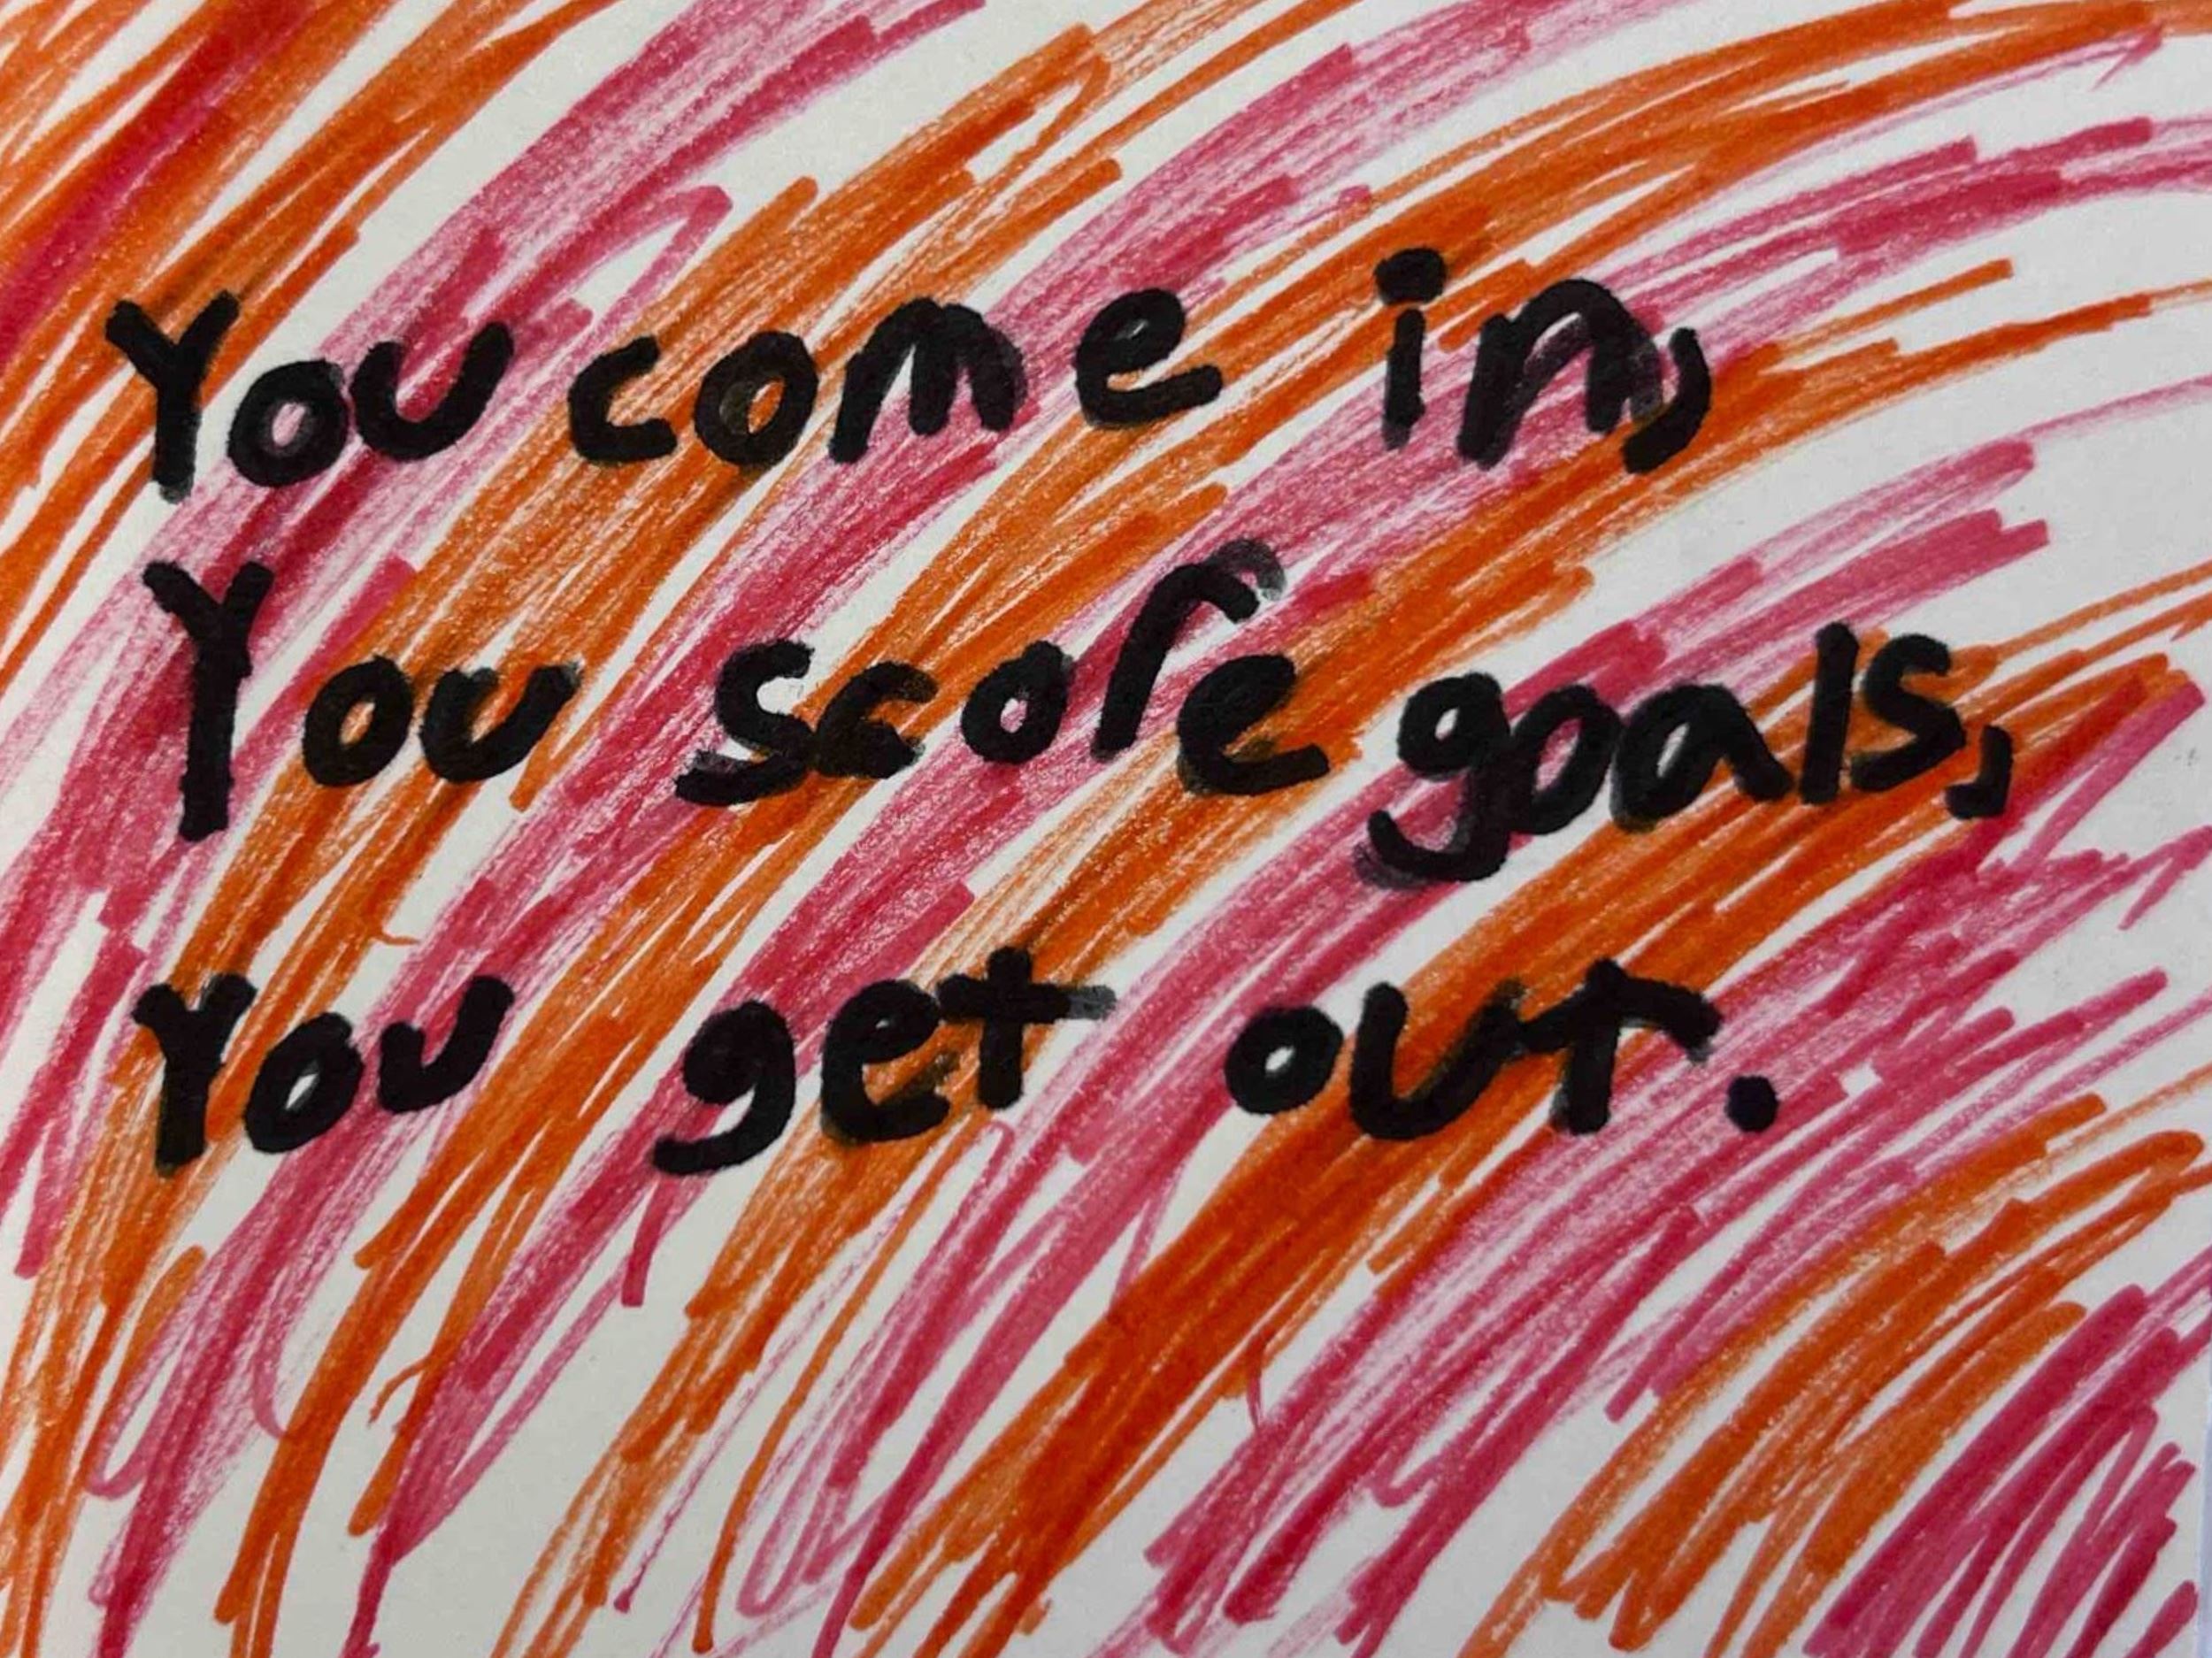 You come in,
You score goals,
You get out.